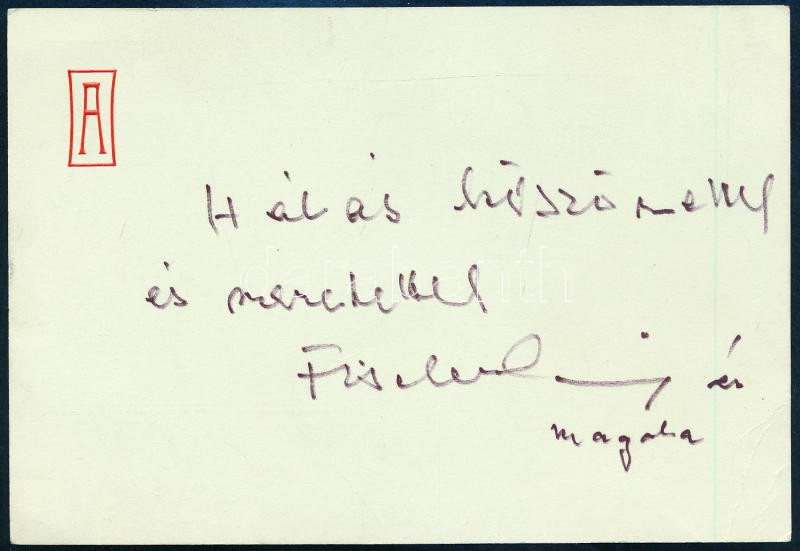 A
Hálás köszönettel
és szeretettel
Fischer és
Magda
darabanth